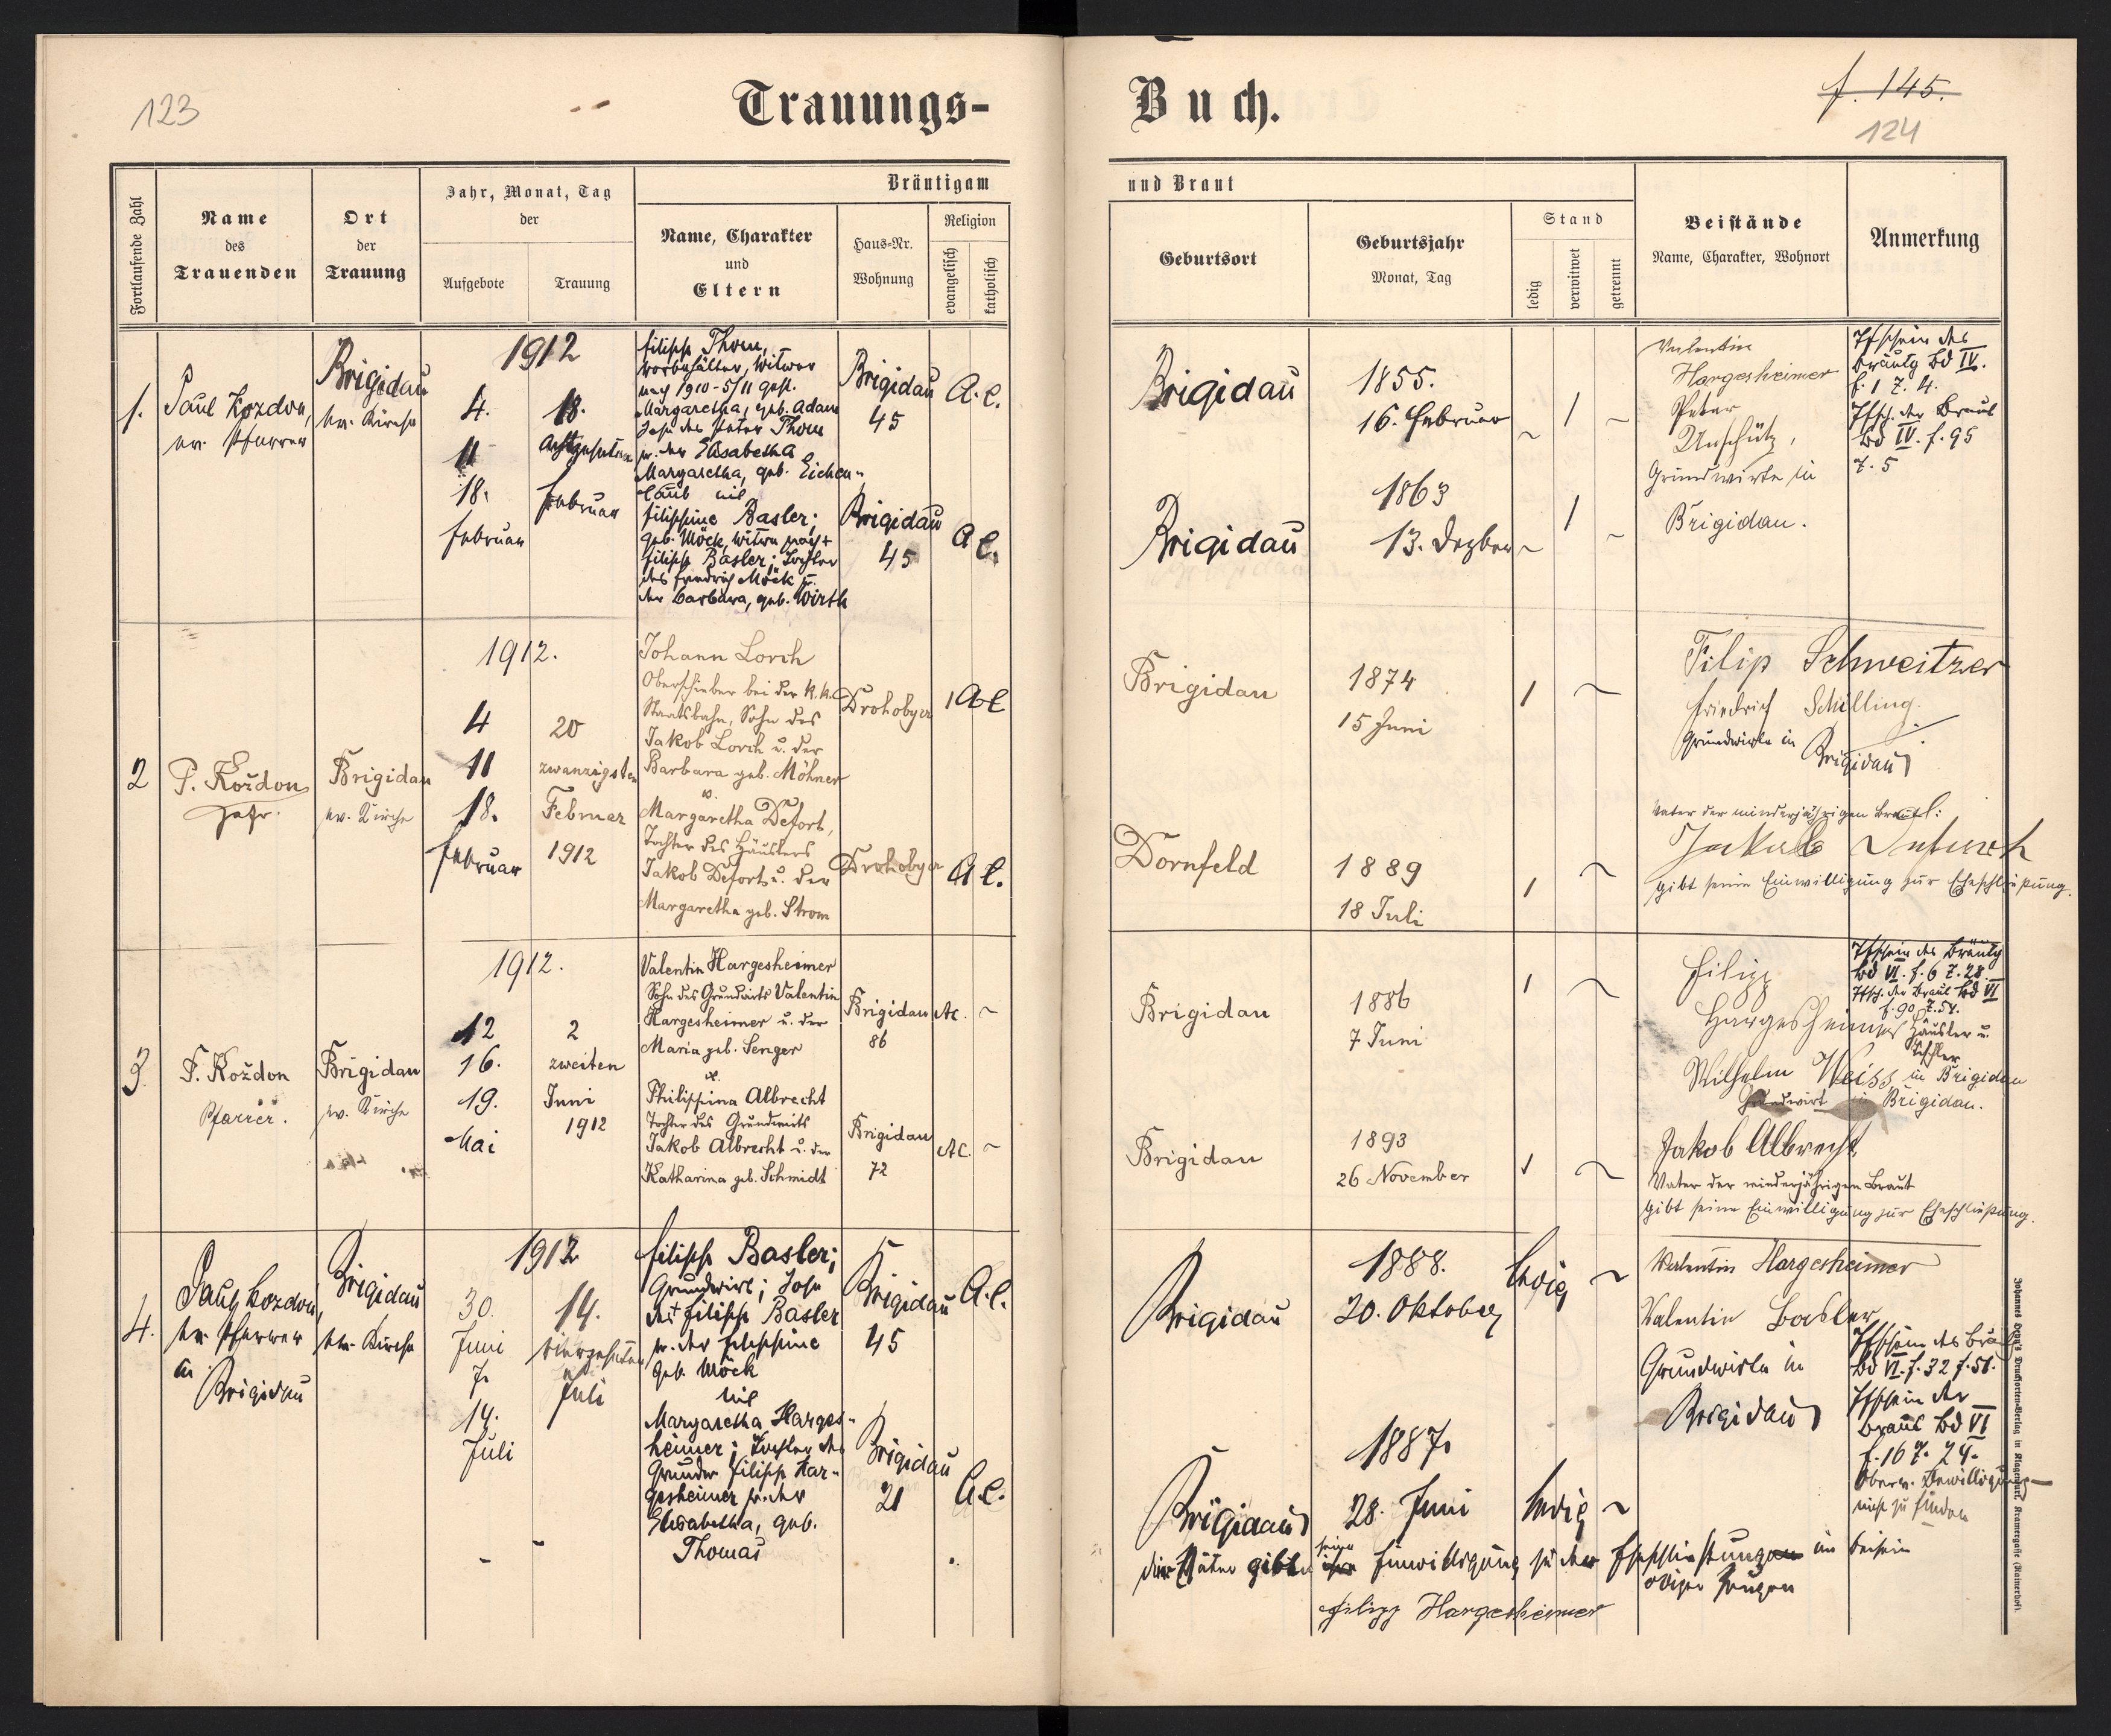 123
Trauungs-
Buch.
f. 145.
124
Fortlaufende Zahl
Name
des
Trauenden
Ort
der
Trauung
Jahr, Monat, Tag
der
Aufgebote
Trauung
Bräutigam
Name, Charakter
und
Eltern
Haus-Nr.
Wohnung
Religion
evangelisch
katholisch
und Braut
Geburtsort
Geburtsjahr
Monat, Tag
Stand
ledig
verwitwet
getrennt
Beistände
Name, Charakter, Wohnort
Anmerkung
1.
Paul Kozdon,
ev. Pfarrer
Brigidau
ev. Kirche
1912
4.
11
18.
Februar
18.
achtzehnten
Februar
Filipp Thom,
Witwer
nach 1910-5/11 gest.
Margaretha, geb. Adam
Sohn des Peter Thom
u. der Elisabetha
Margaretha, geb. Eichen-
laub mit
Filippine Basler;
geb. Möck, Witwe nach +
Filipp Basler; Tochter
des Friedrich Möck u.
der Barbara, geb. Wirth
Brigidau
45
A. C.
Brigidau
45
A C.
Brigidau
1855.
16. Februar
~ 1 ~
Brigidau
1863
13. Dezber
~ 1 ~
Valentin
Hargesheimer
Peter
Unschütz,
Grundwirte in
Brigidau.
Tfschein des
Bräutg Bd IV.
f. 1 Z. 4.
Tfsch. der Braut
Bd IV. f. 95
Z. 5
2
P. Koždon
Pfr.
Brigidau
ev. Kirche
1912.
4
11
18.
Februar
20
zwanzigsten
Februar
1912
Johann Lorch
Oberschieber bei der k.k.
Staatsbahn, Sohn des
Jakob Lorch u. der
Barbara geb. Möhner
u.
Margaretha Defort,
Tochter des Häuslers
Jakob Deforts u. der
Margaretha geb. Strom
Drohobycz
A C
Drohobycz
A C.
Brigidau
1874
15 Juni
1 ~
Dornfeld
1889
18 Juli
1 ~
Filip Schweitzer
Friedrich Schilling.
Grundwirte in
Brigidau
Vater der minderjährigen Braut:
Jakob
gibt seine Einwilligung zur Eheschließung.
3
P. Koždon
Pfarrer.
Brigidau
ev. Kirche
1912.
12
16.
19.
Mai
2
zweiten
Juni
1912
Valentin Hargesheimer
Sohn des Grundwirts Valentin
Hargesheimer u. der
Maria geb. Senger
u.
Philippina Albrecht
Tochter des Grundwirts
Jakob Albrecht u. der
Katharina geb. Schmidt
Brigidau
86
AC. ~
Brigidau
72
AC. ~
Brigidau
1886
7 Juni
1 ~
Brigidau
1893
26 November
1 ~
Filipp
Hargesheimer Häusler u.
Tischler
Wilhelm Weiss in Brigidau
Grundwirt in Brigidau.
Jakob Albrecht
Vater der minderjährigen Braut
gibt seine Einwilligung zur Eheschließung.
Tfschein des Bräutg
Bd VI. f. 6 Z. 28.
Tfsch. der Braut Bd VI
f. 90 Z. 54.
4.
Paul Kozdon,
ev. Pfarrer
in
Brigidau
Brigidau
ev. Kirche
1912
30.
Juni
7.
14.
Juli
14.
vierzehnten
Juli
Filipp Basler;
Grundwirt; Sohn
des + Filipp Basler
u. der Filippine
geb. Möck
mit
Margaretha Harges-
heimer; Tochter des
Grundw. Filipp Har-
gesheimer u. der
Elisabetha, geb.
Thomas
Brigidau
45
A. C.
Brigidau
21
A. C.
Brigidau
1888.
20. Oktober
ledig ~
Brigidau
1887.
28. Juni
ledig ~
Valentin Hargesheimer
Valentin Basler
Grundwirte in
Brigidau
Tfschein des Bräutg
Bd VI. f. 32 Z. 51.
Tfschein der
Braut Bd VI
f. 16 Z. 24.
Bewilligung
nicht zu finden
Väter gibt seine Einwilligung zu der Eheschließung im Beisein
obiger Zeugen
Filipp Hargesheimer
Johannes Heyn's Drucksorten-Verlag in Klagenfurt, Kramergasse (Rainerhof).